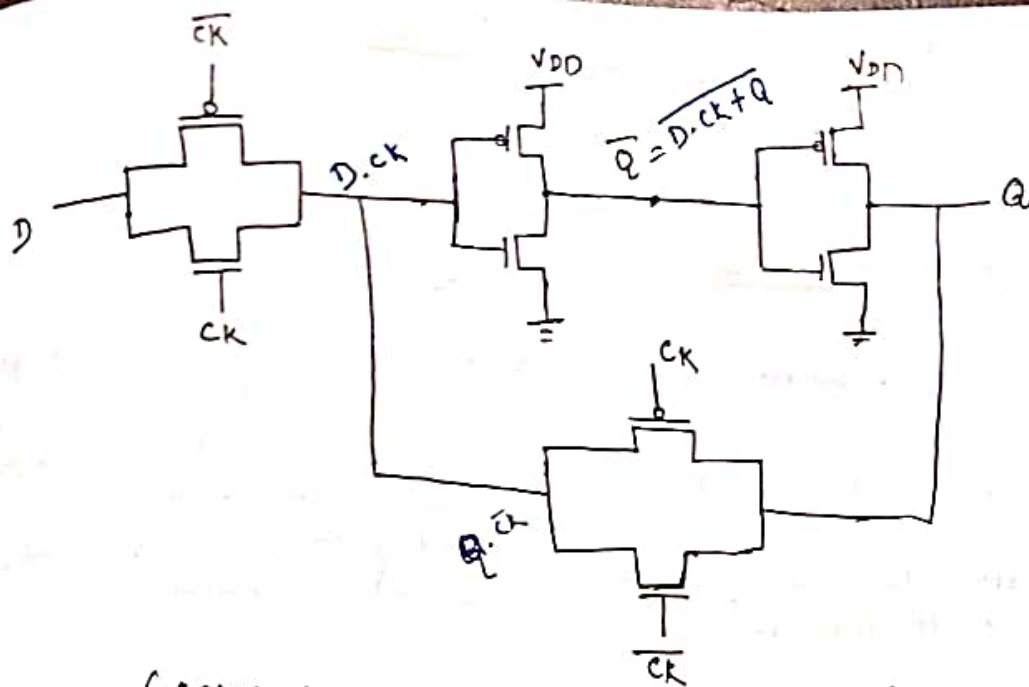 C̅K̅
VDD
VDD
Q̅ = \overline{D.CK+Q}
D.CK
D
Q
CK
CK
Q.C̅K̅
C̅K̅